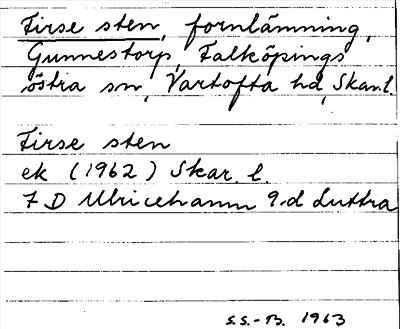 Firse sten, fornlämning,
Gunnestorp, Falköpings
östra sn, Vartofta hd, Skar.l.
Firse sten
ek (1962) Skar. l.
7 D Ulricehamn 9.d Luttra
S.S.-B. 1963